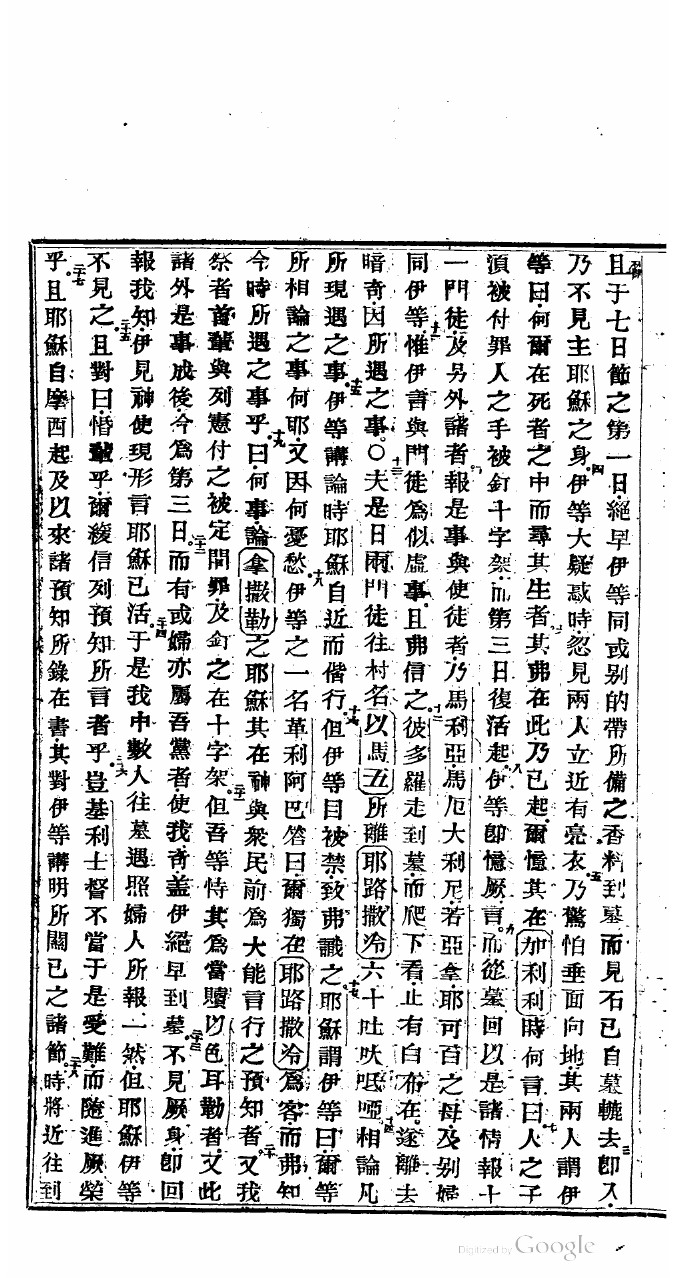 且于七日節之第一日絕早伊等同或别的帶所備之香料到墓而見石已自墓轆去三即入
乃不見主耶穌之身四伊等大疑惑時忽見兩人立近有亮衣五乃驚怕垂面向地其兩人謂伊
等曰何爾在死者之中而尋其生者其弗在此乃已起爾憶其在加利利時何言曰七人之子
須被付罪人之手被釘十字架而第三日復活起八伊等即憶厥言九而從墓回以是諸情報十
一門徒及另外諸者報是事與使徒者乃馬利亞馬厄大利尼若亞拿耶可百之母及别婦
同伊等十一惟伊言與門徒爲似虛事且弗信之十二彼多羅走到墓而爬下看止有白布在遂離去
暗奇因所遇之事○十三夫是日兩門徒往村名以馬五所離耶路撒冷六十吐吠哌啞十四相論凡
所現遇之事十五伊等講論時耶穌自近而偕行十六但伊等目被禁致弗識之十七耶穌謂伊等曰爾等
所相論之事何耶又因何憂愁十八伊等之一名革利阿巴答曰爾獨在耶路撒冷爲客而弗知
今時所遇之事乎十九曰何事論拿撒勒之耶穌其在神與衆民前爲大能言行之預知者二十又我
祭者首輩與列憲付之被定問罪及釘之在十字架二十一但吾等恃其爲當贖以色耳勒者又此
諸外是事成後今爲第三日二十二而有或婦亦屬吾黨者使我奇蓋伊絕早到墓二十三不見厥身即回
報我知伊見神使現形言耶穌已活二十四于是我中數人往墓遇照婦人所報一然但耶穌伊等
不見之二十五且對曰惛輩乎爾緩信列預知所言者乎二十六豈基利士督不當于是受難而隨進厥榮
乎二十七且耶穌自摩西起及以來諸預知所錄在書其對伊等講明所關已之諸節二十八時將近往到
Digitized by Google